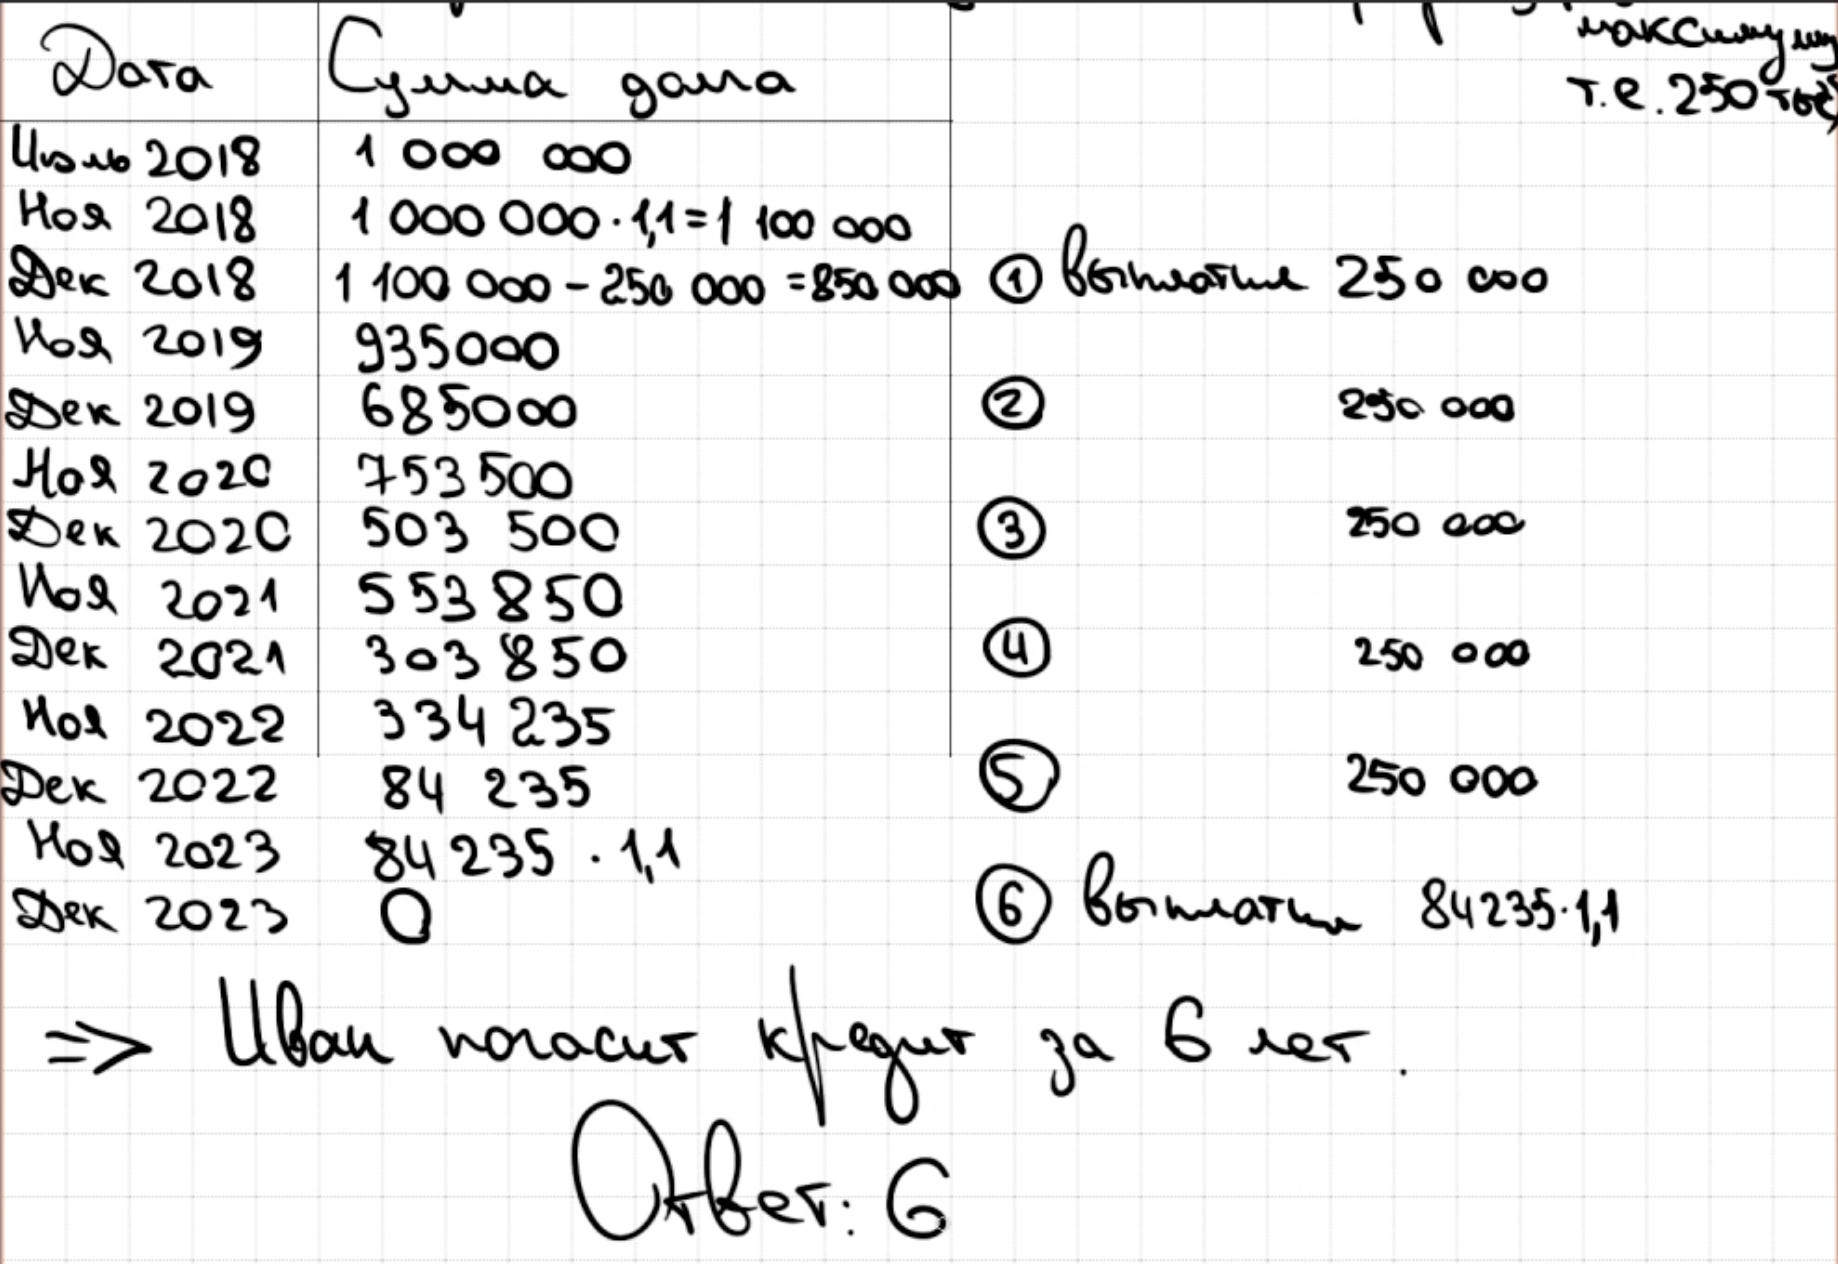 максимуму
т.е. 250 тыс
Дата Сумма долга
Июль 2018 1 000 000
Ноя 2018 1 000 000 · 1,1 = 1 100 000
Дек 2018 1 100 000 - 250 000 = 850 000 ① Выплатил 250 000
Ноя 2019 935000
Дек 2019 685000 ② 250 000
Ноя 2020 753 500
Дек 2020 503 500 ③ 250 000
Ноя 2021 553 850
Дек 2021 303 850 ④ 250 000
Ноя 2022 334 235
Дек 2022 84 235 ⑤ 250 000
Ноя 2023 84 235 · 1,1
Дек 2023 0 ⑥ Выплатил 84235·1,1
=> Иван погасит кредит за 6 лет.
Ответ: 6